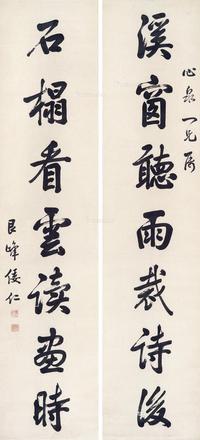 心泉一兄属
溪窗聽雨裁詩後
石榻看雲讀畫時
艮峰倭仁